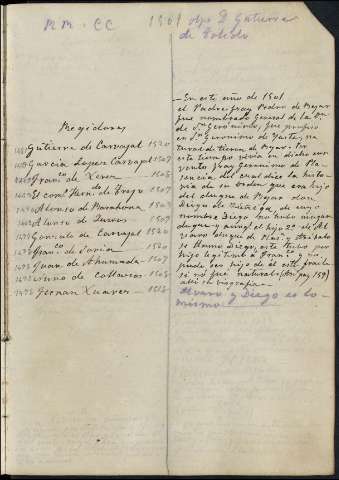 RR. CC 1501 obpo D Gutierre
de Toledo
Regidores
Gutierre de Carvajal 1520
Garcia Lopez Carvajal 1507
Franco de Xerez 1508
El coml Hernº de Trejo 1507
Alonso de Barahona 1507
Alvaro de 1507
Gonzalo de Carvajal 1520
Franco de Soria 1520
Juan de Ahumada 1507
de Collazos 1508
German Xuarez 1508
—En este año de 1501
el Padre Fray Pedro de Bejar
fue nombrado General de la On
de Sn Geronimo, que profesó
en Sn Geronimo de Yuste, na
tural de tierra de Bejar. Por
este tiempo vivia en dicho con
vento fray Geronimo de Pla
sencia del cual dice la histo
ria de su orden que era hijo
del duque de Bejar don
Diego de Zúñiga, de cuyo
nombre Diego no hubo ningun
duque y aunql el hijo 2º de Al
varo duque de Plasª y Arevalo
se llamo Diego, este tubo por
hijo legitimo a Franº y no
puede ser hijo de él este fraile
si no fue natural
alli su biografia—
Alvaro y Diego es lo
mismo